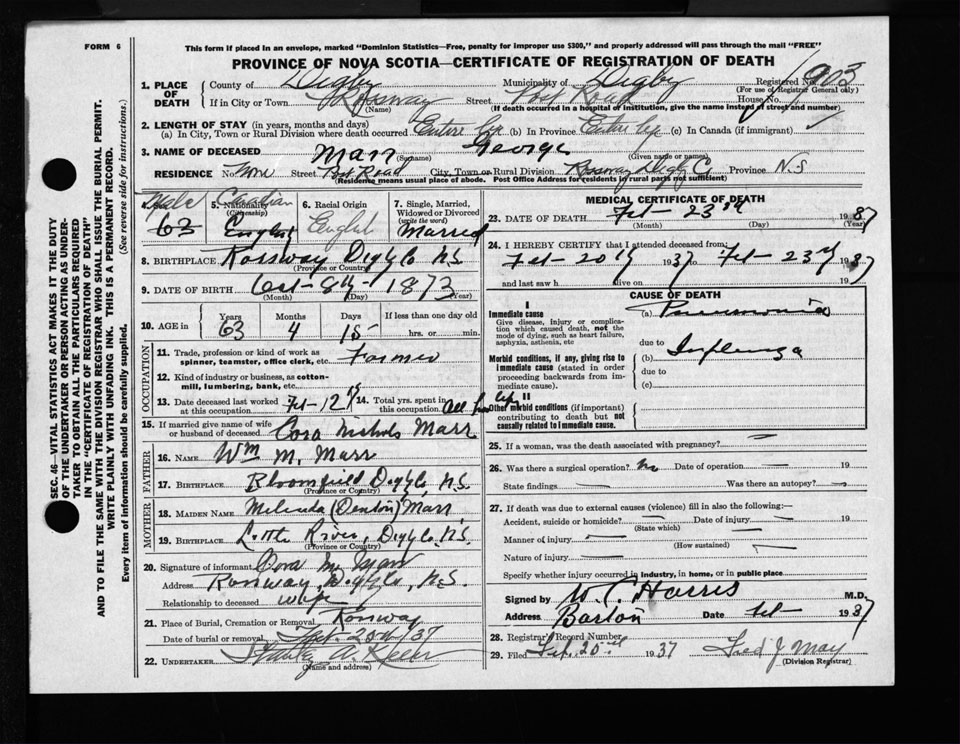 FORM 6
This form if placed in an envelope, marked "Dominion Statistics—Free, penalty for improper use $300," and properly addressed will pass through the mail "FREE"
PROVINCE OF NOVA SCOTIA—CERTIFICATE OF REGISTRATION OF DEATH
1. PLACE OF DEATH
County of Digby Municipality of Digby Registered No. 1903
(For use of Registrar General only)
If in City or Town Rossway Street Post Road House No.
(Name) (If death occurred in a hospital of institution, give the name instead of street and number)
2. LENGTH OF STAY (in years, months and days)
(a) In City, Town or Rural Division where death occurred Entire life (b) In Province Entire life (c) In Canada (if immigrant)
3. NAME OF DECEASED Marr George
(Surname) (Given name or names)
RESIDENCE No. None Street Post Road City, Town or Rural Division Rossway Digby Co Province N.S
(Residence means usual place of abode. Post Office Address for residents of rural parts not sufficient)
Male 5. Nationality (Citizenship) Canadian 6. Racial Origin 7. Single, Married, Widowed or Divorced (write the word)
63 English English Married
8. BIRTHPLACE Rossway Digby Co N.S.
(Province or Country)
9. DATE OF BIRTH Oct - 8th - 1873
(Month) (Day) (Year)
10. AGE in Years Months Days If less than one day old
63 4 15 hrs. or min.
OCCUPATION
11. Trade, profession or kind of work as spinner, teamster, office clerk, etc. Farmer
12. Kind of industry or business, as cotton-mill, lumbering, bank, etc.
13. Date deceased last worked at this occupation Feb - 12th 14. Total yrs. spent in this occupation All his life
15. If married give name of wife or husband of deceased Cora Nichols Marr
FATHER
16. NAME Wm M. Marr
17. BIRTHPLACE Bloomfield Digby Co, N.S.
(Province or Country)
MOTHER
18. MAIDEN NAME Melinda (Denton) Marr
19. BIRTHPLACE Little River, Digby Co. N.S.
(Province or Country)
20. Signature of informant Cora M. Marr
Address Rossway, Digby Co, N.S.
Relationship to deceased wife
21. Place of Burial, Cremation or Removal Rossway
Date of burial or removal Feb. 25th/37
22. UNDERTAKER
(Name and address)
MEDICAL CERTIFICATE OF DEATH
23. DATE OF DEATH Feb - 23rd 1937
(Month) (Day) (Year)
24. I HEREBY CERTIFY that I attended deceased from:
Feb - 20th 1937 to Feb - 23rd 1937
and last saw h alive on 19
CAUSE OF DEATH
I
Immediate cause (a) Pneumonia
Give disease, injury or complication which caused death, not the mode of dying, such as heart failure, asphyxia, asthenia, etc
due to
Morbid conditions, if any, giving rise to immediate cause (stated in order proceeding backwards from immediate cause).
(b) Influenza
due to
(c)
II
Other morbid conditions (if important) contributing to death but not causally related to immediate cause.
25. If a woman, was the death associated with pregnancy?
26. Was there a surgical operation? no Date of operation — 19
State findings — Was there an autopsy? —
27. If death was due to external causes (violence) fill in also the following:—
Accident, suicide or homicide? — Date of injury — 19
(State which)
Manner of injury — (How sustained) —
Nature of injury —
Specify whether injury occurred in industry, in home, or in public place
Signed by W. C. Harris M.D.
Address Barton Date Feb - 1937
28. Registrar's Record Number
29. Filed Feb. 25th 1937 Fred J. May
(Division Registrar)
SEC. 46—VITAL STATISTICS ACT MAKES IT THE DUTY
OF THE UNDERTAKER OR PERSON ACTING AS UNDER-
TAKER TO OBTAIN ALL THE PARTICULARS REQUIRED
IN THE "CERTIFICATE OF REGISTRATION OF DEATH"
AND TO FILE THE SAME WITH THE DIVISION REGISTRAR WHO SHALL ISSUE THE BURIAL PERMIT.
WRITE PLAINLY WITH UNFADING INK. THIS IS A PERMANENT RECORD.
Every item of information should be carefully supplied. (See reverse side for instructions.)